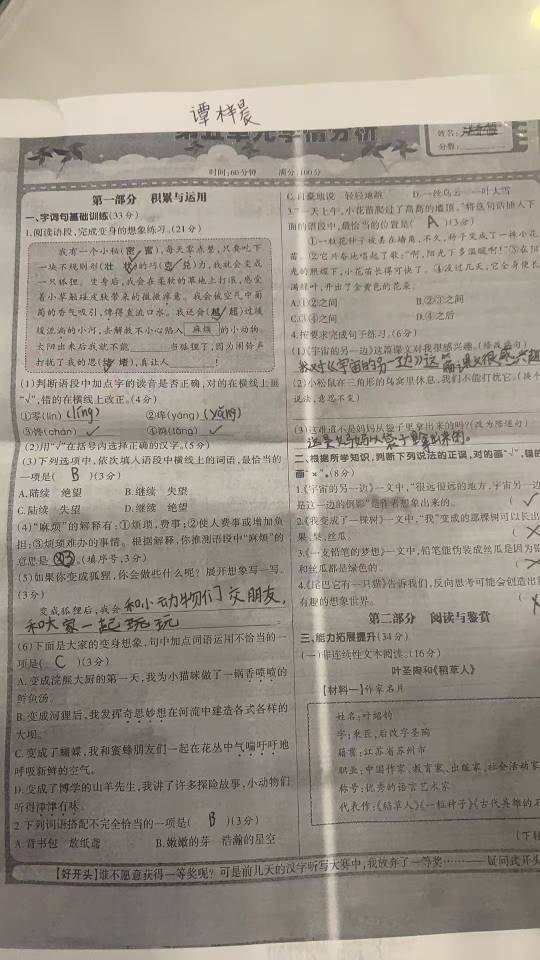 谭梓晨
第五单元学情分析
姓名:
分数:
时间:60分钟 满分:100分
第一部分 积累与运用
一、字词句基础训练(33分)
1.阅读语段,完成变身的想象练习。(21分)
我有一个小秘(密 蜜),每天零点整,只要吃下
一块不规则形(壮 状)的巧(克 兑)力,我就会变成
一只狐狸。变身后,我会在柔软的草地上打滚,感受
着小草触碰皮肤带来的微微痒意。我会被空气中葡
萄的香气吸引,馋得直流口水。我还会(越 超)过缓
缓流淌的小河,去解救不小心陷入 麻烦 的小动物。
太阳出来后我就不能 当狐狸了,因为闹铃声
打扰了我的思(绪 堵),真让人 !
(1)判断语段中加点字的读音是否正确,对的在横线上画
“√”,错的在横线上改正。(4分)
①零(lín) (líng) ②痒(yáng) (yǎng)
③馋(chán) √ ④淌(tǎng) √
(2)用“√”在括号内选择正确的汉字。(5分)
(3)下列选项中,依次填入语段中横线上的词语,最恰当的
一项是( B )(3分)
A.陆续 绝望 B.继续 失望
C.陆续 失望 D.继续 绝望
(4)“麻烦”的解释有:①烦琐,费事;②使人费事或增加负
担;③烦琐难办的事情。根据解释,你推测语段中“麻烦”的
意思是 。(填序号,3分)
(5)如果你变成狐狸,你会做些什么呢?展开想象写一写。
(3分)
变成狐狸后,我会 和小动物们交朋友,
和大家一起玩玩
(6)下面是大家的变身想象,句中加点词语运用不恰当的一
项是( C )(3分)
A.变成浣熊大厨的第一天,我为小猫咪做了一锅香喷喷的
鲜鱼汤。
B.变成河狸后,我发挥奇思妙想在河流中建造各式各样的
大坝。
C.变成了蝴蝶,我和蜜蜂朋友们一起在花丛中气喘吁吁地
呼吸新鲜的空气。
D.变成了博学的山羊先生,我讲了许多探险故事,小动物们
听得津津有味。
2.下列词语搭配不完全恰当的一项是( B )(3分)
A.背书包 放纸鸢 B.嫩嫩的芽 浩瀚的星空
C.自豪地说 轻轻地跳 D.一丝乌云 一叶大雪
3.“一天上午,小花苗爬过了高高的墙顶。”将该句话插入下
面的语段中,最恰当的位置是( A )(3分)
①一粒花种子被丢在墙角,不久,种子变成了一株小花
苗。②它兴奋地唱起了歌:“啊,阳光下多温暖啊!”③在阳
光的照耀下,小花苗长得可快了。④没过几天,它全身便长
满绿叶,开出了金黄色的花朵。
A.①②之间 B.②③之间
C.③④之间 D.④之后
4.按要求完成句子练习。(6分)
(1)《宇宙的另一边》这篇课文对我很感兴趣。(修改病句)
我对《宇宙的另一边》这篇课文很感兴趣
(2)小松鼠在三角形的鸟窝里休息,我们不能打扰它。(换个
说法,意思不变)
(3)这难道不是妈妈从袋子里拿出来的吗?(改为陈述句)
这是妈妈从袋子里拿出来的。
二、根据所学知识,判断下列说法的正误,对的画“√”,错的
画“×”。(8分)
1.《宇宙的另一边》一文中,“很远很远的地方,宇宙另一边
是这一边的倒影”是作者想象出来的。 ( √
2.《我变成了一棵树》一文中,“我”变成的那棵树可以长出
果、梨、丝瓜。 ( ×
3.《一支铅笔的梦想》一文中,铅笔能伪装成丝瓜是因为铅
和丝瓜都是绿色的。 ( ×
4.《尾巴它有一只猫》告诉我们,反向思考可能会创造出
有趣的想象世界。 ( ×
第二部分 阅读与鉴赏
三、能力拓展提升(34分)
(一)非连续性文本阅读。(16分)
叶圣陶和《稻草人》
【材料一】作家名片
姓名:叶绍钧
字:秉臣,后改字圣陶
籍贯:江苏省苏州市
职业:中国作家、教育家、出版家、社会活动家
称号:优秀的语言艺术家
代表作:《稻草人》《一粒种子》《古代英雄的石
(下转
【好开头】谁不愿意获得一等奖呢?可是前几天的汉字听写大赛中,我放弃了一等奖……——疑问式开头